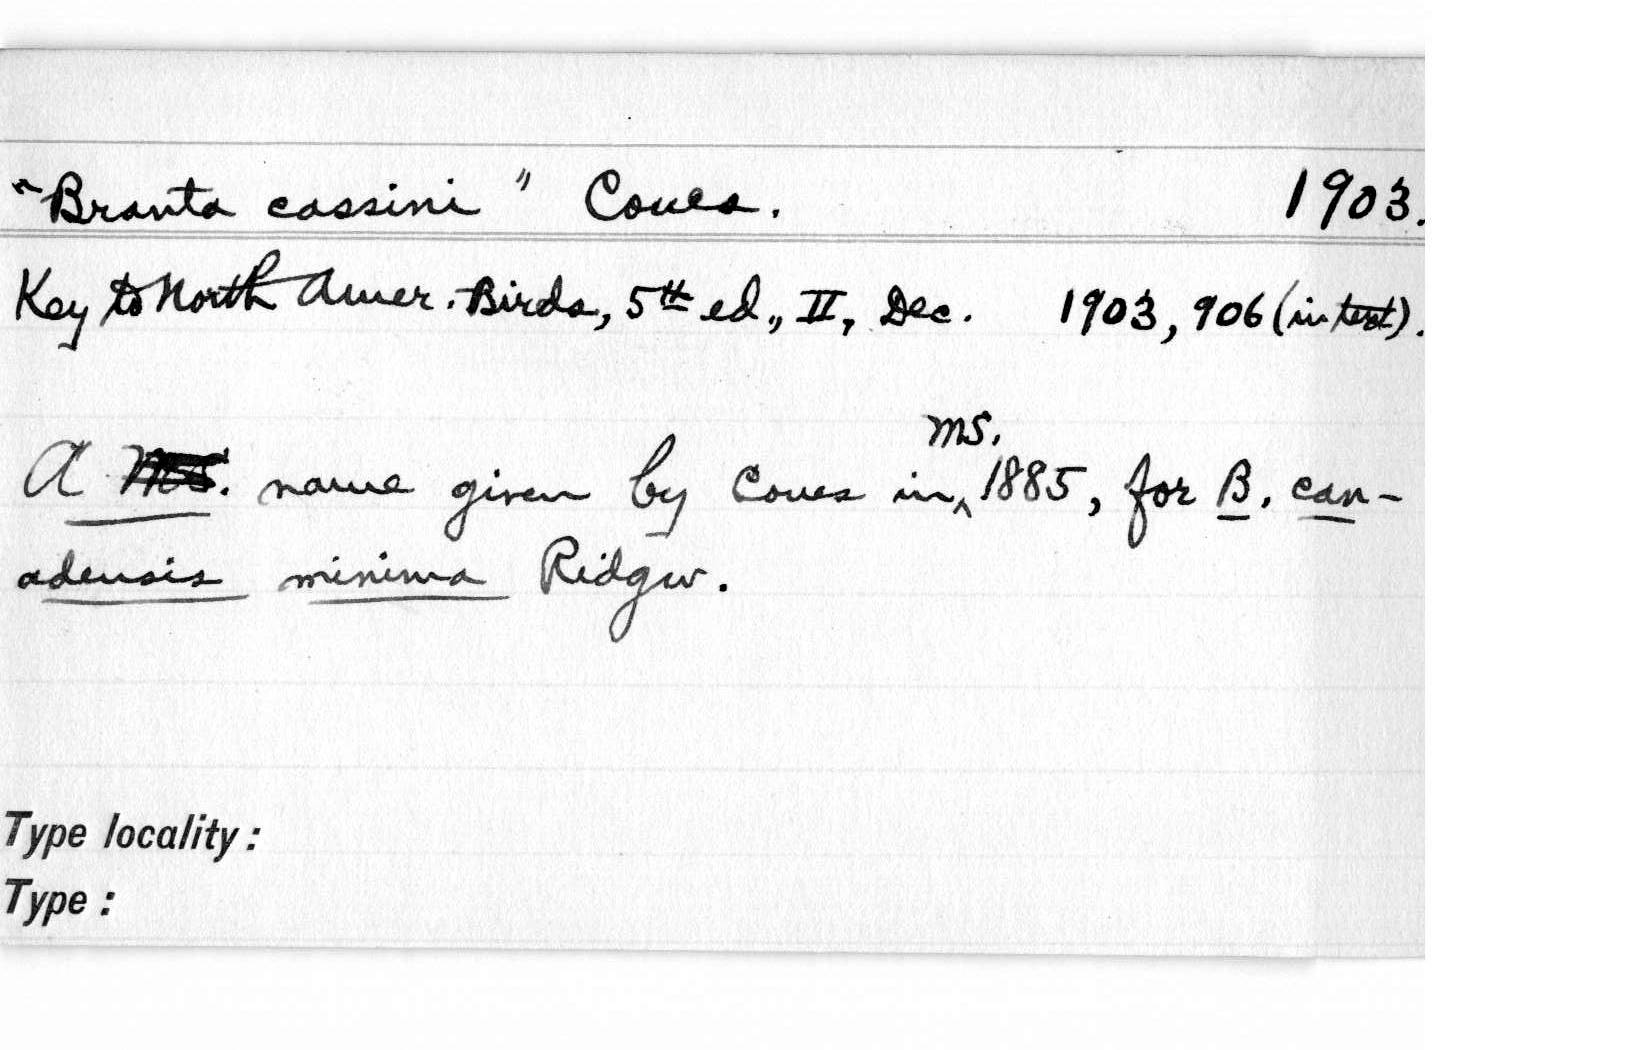 "Branta cassini" Coues. 1903.
Key to North Amer. Birds, 5th ed., II, Dec. 1903, 906 (in text).
A Ms. name given by Coues in ^ MS. 1885, for B. can-
adensis minima Ridgw.
Type locality:
Type: